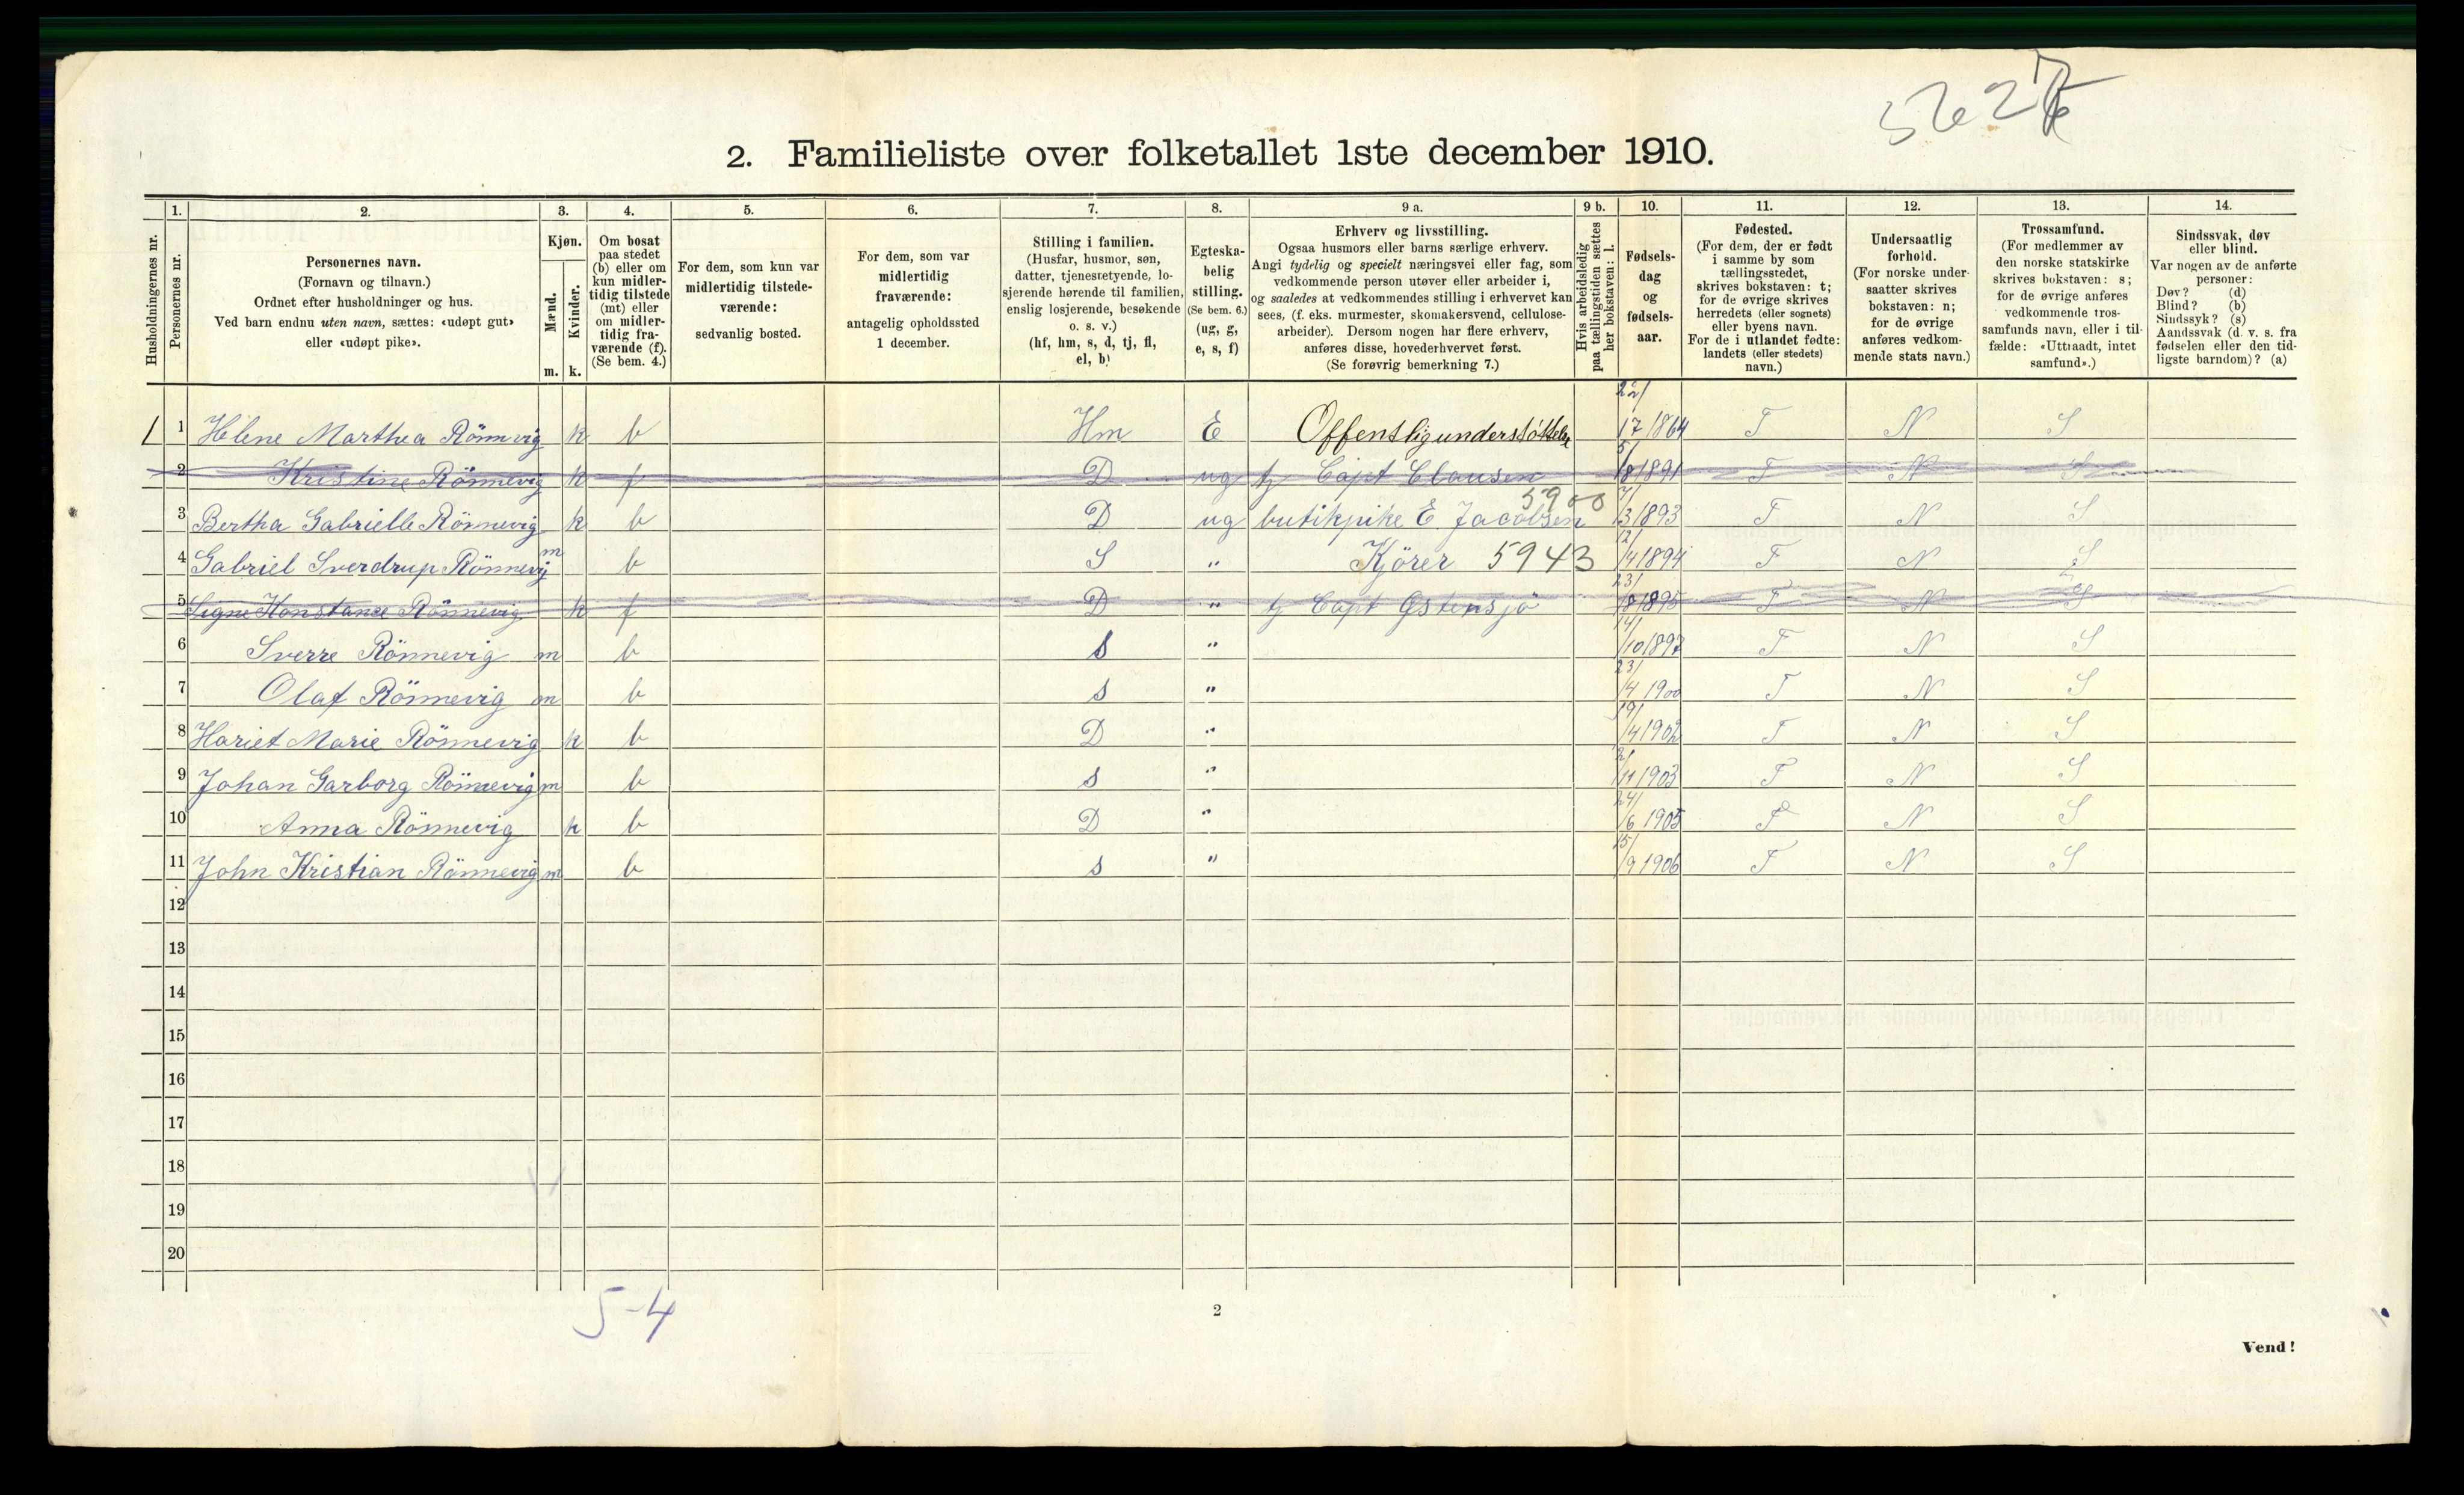 3627
2. Familieliste over folketallet 1ste december 1910.
Husholdningernes nr.
1. Personernes nr.
2. Personernes navn. (Fornavn og tilnavn.) Ordnet efter husholdninger og hus. Ved barn endnu uten navn, sættes: «udøpt gut» eller «udøpt pike».
3. Kjøn. Mænd. m. Kvinder. k.
4. Om bosat paa stedet (b) eller om kun midlertidig tilstede (mt) eller om midlertidig fraværende (f). (Se bem. 4.)
5. For dem, som kun var midlertidig tilstedeværende: sedvanlig bosted.
6. For dem, som var midlertidig fraværende: antagelig opholdssted 1 december.
7. Stilling i familien. (Husfar, husmor, søn, datter, tjenestetyende, losjerende hørende til familien, enslig losjerende, besøkende o. s. v.) (hf, hm, s, d, tj, fl, el, b)
8. Egteskabelig stilling. (Se bem. 6.) (ug, g, e, s, f)
9 a. Erhverv og livsstilling. Ogsaa husmors eller barns særlige erhverv. Angi tydelig og specielt næringsvei eller fag, som vedkommende person utøver eller arbeider i, og saaledes at vedkommendes stilling i erhvervet kan sees, (f. eks. murmester, skomakersvend, cellulosearbeider). Dersom nogen har flere erhverv, anføres disse, hovederhvervet først. (Se forøvrig bemerkning 7.)
9 b. Hvis arbeidsledig paa tællingstiden sættes her bokstaven: l.
10. Fødselsdag og fødselsaar.
11. Fødested. (For dem, der er født i samme by som tællingsstedet, skrives bokstaven: t; for de øvrige skrives herredets (eller sognets) eller byens navn. For de i utlandet fødte: landets (eller stedets) navn.)
12. Undersaatlig forhold. (For norske undersaatter skrives bokstaven: n; for de øvrige anføres vedkommende stats navn.)
13. Trossamfund. (For medlemmer av den norske statskirke skrives bokstaven: s; for de øvrige anføres vedkommende trossamfunds navn, eller i tilfælde: «Uttraadt, intet samfund».)
14. Sindssvak, døv eller blind. Var nogen av de anførte personer: Døv? (d) Blind? (b) Sindssyk? (s) Aandssvak (d. v. s. fra fødselen eller den tidligste barndom)? (a)
1 1 Helene Marthea Rönnevig k b Hm E Offentlig understöttelse 22/ 1864 T N S
2 Kristine Rönnevig k f D ug tj Capt Clausen 5/8 1891 T N S
3 Bertha Gabrielle Rönnevig k b D ug butikpike E Jacobsen 5900 7/3 1893 T N S
4 Gabriel Sverdrup Rönnevig m b S " Kjörer 5943 12/4 1894 T N S
5 Signe Konstance Rönnevig k f D " tj Capt Østensjö 23/8 1895 T N S
6 Sverre Rönnevig m b s " 14/10 1897 T N S
7 Olaf Rönnevig m b s " 23/4 1900 T N S
8 Hariet Marie Rönnevig k b D " 19/4 1902 T N S
9 Johan Garborg Rönnevig m b s " 2/11 1903 T N S
10 Anna Rönnevig k b D " 24/6 1905 T N S
11 John Kristian Rönnevig m b s " 15/9 1906 T N S
12
13
14
15
16
17
18
19
20
5-4
2
Vend!